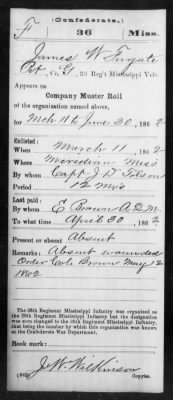 (Confederate.)
F 36 Miss.
James W Fugate
Pvt, Co. G, 36 Reg't Mississippi Vols.
Appears on
Company Muster Roll
of the organization named above,
for Mch 11 to June 30, 1862
Enlisted:
When March 11, 1862
Where Meridian Miss
By whom Capt J D
Period 12 Mos
Last paid:
By whom E Brown A.Q.M.
To what time April 30, 1862
Present or absent Absent
Remarks: Absent wounded
Order Col. Brown May 12
1862
The 36th Regiment Mississippi Infantry was organized as
the 28th Regiment Mississippi Infantry but the designation
was soon changed to the 36th Regiment Mississippi Infantry,
that being the number by which this organization was known at
the Confederate War Department.
Book mark:
J. W. Wilkinson
(642) Copyist.